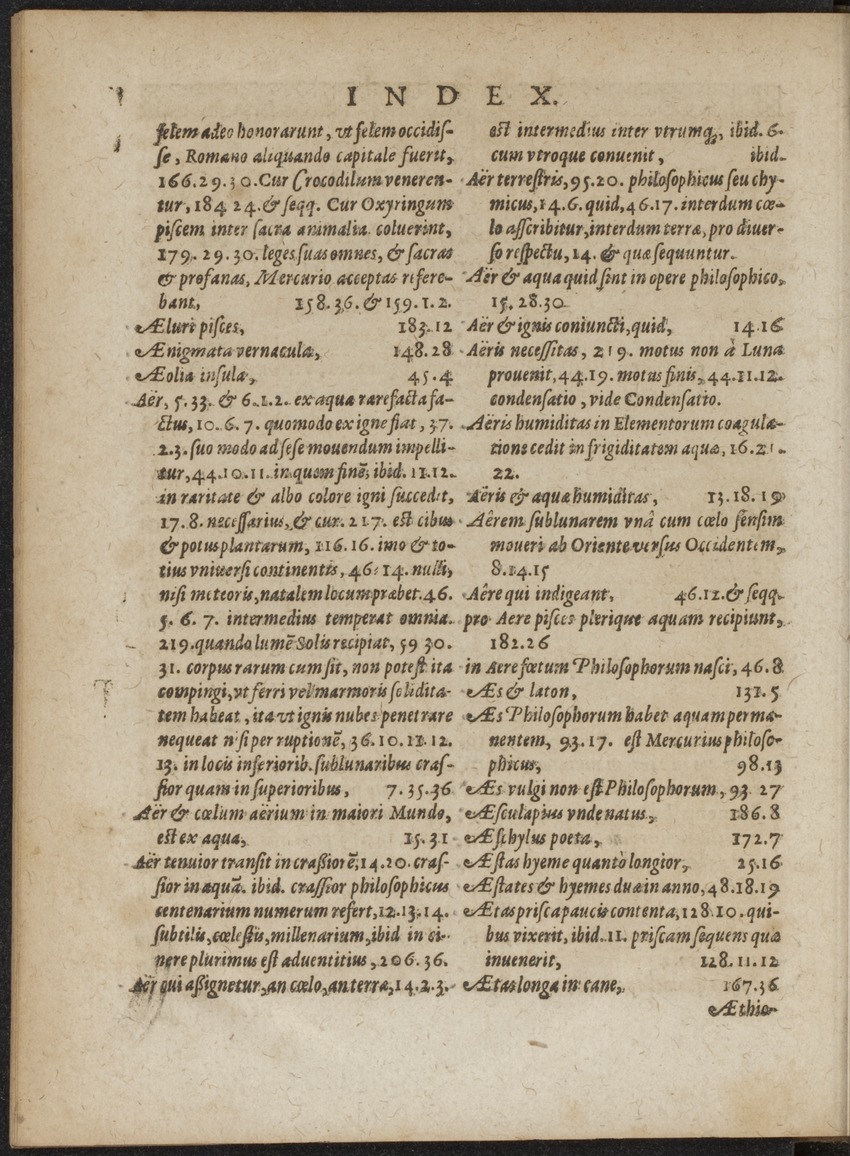 INDEX.
felem adeo honorarunt, vt felem occidis-
se, Romano aliquando capitale fuerit,
166.29.30. Cur Crocodilum veneren-
tur, 184 24. & seqq. Cur Oxyringum
piscem inter sacra animalia coluerint,
179. 29. 30. leges suas omnes, & sacras
& profanas, Mercurio acceptas refere-
bant, 158.36. & 159.1.2.
Æluri pisces, 183.12
Ænigmata vernacula, 148.28
Æolia insula, 45.4
Aër, 5.33. & 6.1.2. ex aqua rarefacta fa-
ctus, 10.6.7. quomodo ex igne fiat, 37.
2.3. suo modo ad sese mouendum impelli-
tur, 44.10.11. in quem finē, ibid. 11.12.
in raritate & albo colore igni succedit,
17.8. necessarius, & cur. 217. est cibus
& potus plantarum, 116.16. imo & to-
tius vniuersi continentis, 46.14. nulli,
nisi meteoris, natalem locum præbet. 46.
5. 6. 7. intermedius temperat omnia.
219. quando lumē Solis recipiat, 59 30.
31. corpus rarum cum sit, non potest ita
compingi, vt ferri vel marmoris solidita-
tem habeat, ita vt ignis nubes penetrare
nequeat nisi per ruptionē, 36.10.11.12.
13. in locis inferiorib. sublunaribus cras-
sior quam in superioribus, 7.35.36
Aër & cœlum aërium in maiori Mundo,
est ex aqua, 15.31
Aër tenuior transit in crassiorē, 14.20. cras-
sior in aquā. ibid. crassior philosophicus
centenarium numerum refert, 12.13.14.
subtilis, cœlestis, millenarium, ibid in ci-
nere plurimus est aduentitius, 206.36.
Aër qui assignetur, an cœlo, an terræ, 14.2.3.
est intermedius inter vtrumq;, ibid. 6.
cum vtroque conuenit, ibid.
Aër terrestris, 95.20. philosophicus seu chy-
micus, 14.6. quid, 46.17. interdum cœ-
lo asscribitur, interdum terræ, pro diuer-
so respectu, 14. & quæ sequuntur.
Aër & aqua quid sint in opere philosophico,
15.28.30
Aër & ignis coniuncti, quid, 14.16
Aëris necessitas, 219. motus non à Luna
prouenit, 44.19. motus finis, 44.11.12.
condensatio, vide Condensatio.
Aëris humiditas in Elementorum coagula-
tione cedit in frigiditatem aquæ, 16.21.
22.
Aëris & aquæ humiditas, 13.18.19
Aêrem sublunarem vnâ cum cœlo sensim
moueri ab Oriente versus Occidentem,
8.14.15
Aêre qui indigeant, 46.12. & seqq.
pro Aere pisces plerique aquam recipiunt,
182.26
in Aere fœtum Philosophorum nasci, 46.8
Æs & laton, 131.5
Æs Philosophorum habet aquam perma-
nentem, 93.17. est Mercurius philoso-
phicus, 98.13
Æs vulgi non est Philosophorum, 93 27
Æsculapius vnde natus, 186.8
Æschylus poeta, 172.7
Æstas hyeme quantò longior, 25.16
Æstates & hyemes duæ in anno, 48.18.19
Ætas prisca paucis contenta, 128.10. qui-
bus vixerit, ibid. 11. priscam sequens quæ
inuenerit, 128.11.12
Ætas longa in cane, 167.36
Æthio-